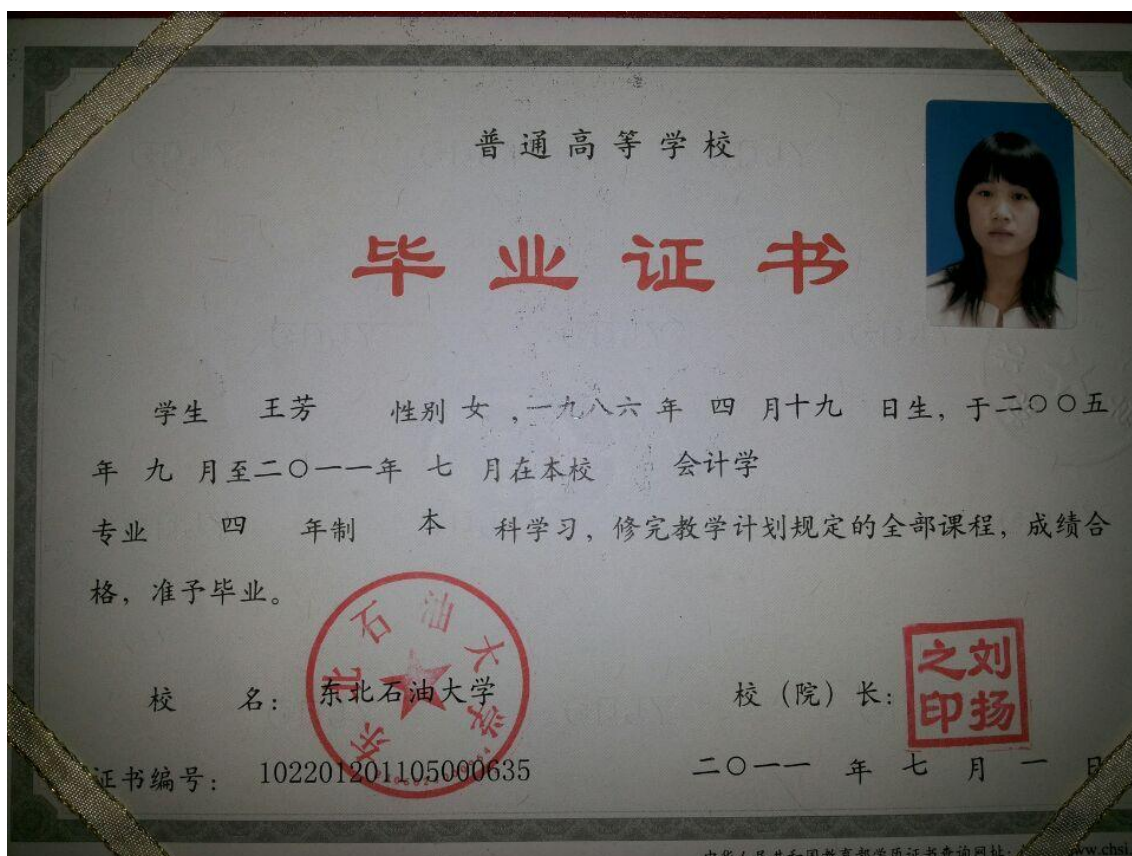 普通高等学校
毕业证书
学生 王芳 性别 女 ,一九八六 年 四 月十九 日生, 于二〇〇五
年 九 月至二〇一一年 七 月在本校 会计学
专业 四 年制 本 科学习, 修完教学计划规定的全部课程, 成绩合
格, 准予毕业。
东北石油大学
校 名: 东北石油大学
校 (院) 长:
刘扬之印
证书编号: 102201201105000635
二〇一一 年 七 月 一 日
中华人民共和国教育部学历证书查询网址: www.chsi.